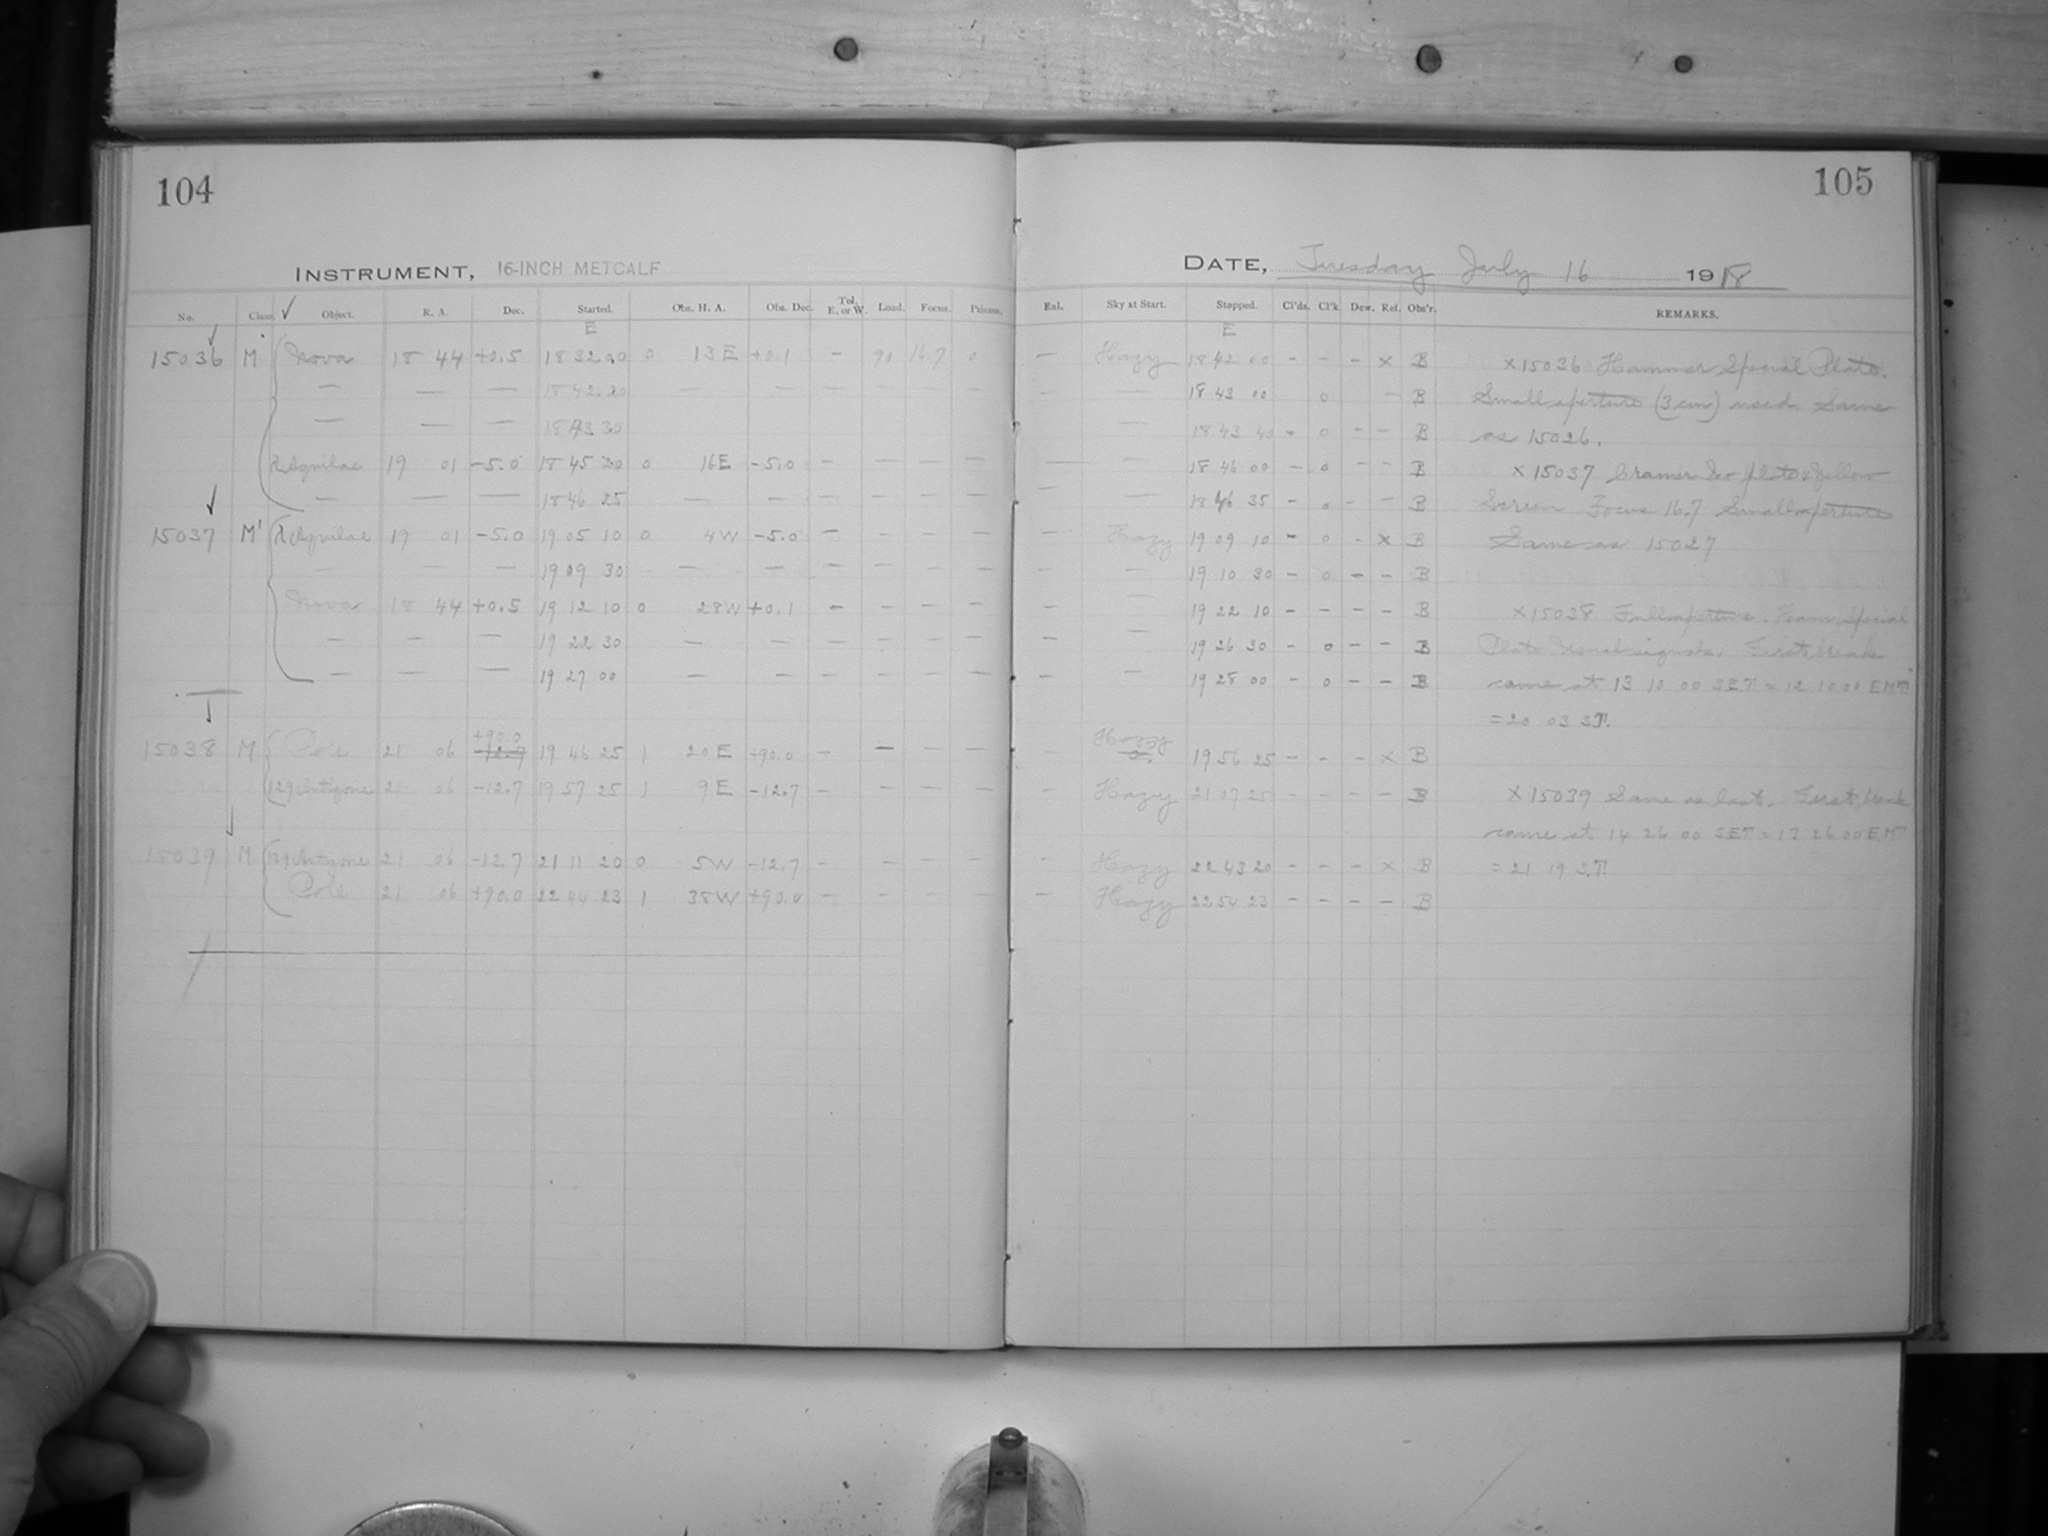 104
INSTRUMENT, 16-INCH METCALF
No. Class. Object. R. A. Dec. Started. Obs. H. A. Obs. Dec. Tel. E. or W. Load. Focus. Prisms.
E
15036 M Nova 18 44 +0.5 18 32 00 0 13 E +0.1 — 90 16.7 0
— — — 18 42 20
— — — 18 43 30
R Aquilae 19 01 -5.0 18 45 20 0 16 E -5.0 — — — —
— — — 18 46 25 — — — — — —
15037 M' R Aquilae 19 01 -5.0 19 05 10 0 4 W -5.0 — — — —
— — — 19 09 30 — — — — — —
Nova 18 44 +0.5 19 12 10 0 28 W +0.1 — — — —
— — — 19 22 30 — — — — — —
— — — 19 27 00 — — — — — —
+90.0
15038 M Pole 21 06 -12.7 19 46 25 1 20 E +90.0 — — — —
129 Antigone 21 06 -12.7 19 57 25 1 9 E -12.7 — — — —
15039 M 129 Antigone 21 06 -12.7 21 11 20 0 5 W -12.7 — — — —
Pole 21 06 +90.0 22 44 23 1 38 W +90.0 — — — —
105
DATE, Tuesday July 16 1918
Enl. Sky at Start. Stopped. Cl'ds. Cl'k Dew. Ref. Obs'r. REMARKS.
E
— Hazy 18 42 00 - - - x B x 15036 Hammer Special Plate.
— — 18 43 00 o - B Small aperture (3 cm) used. Same
— 18 43 40 - o - - B as 15026.
— — 18 46 00 - o - - B x 15037 Cramer Iso plate & Yellow
— — 18 46 35 - o - - B Screen Focus 16.7 Small aperture
— Hazy 19 09 10 - o - x B Same as 15027
— — 19 10 30 - o - - B
— — 19 22 10 - - - - B x 15038 Full aperture. Ham. Special
— — 19 26 30 - o - - B Plate Usual signals. First break
— — 19 28 00 - o - - B came at 13 10 00 SET = 12 10 00 EMT
= 20 03 ST.
— Hazy 19 56 25 - - - x B
— Hazy 21 07 25 - - - - B x 15039 Same as last. First break
came at 14 26 00 SET = 13 26 00 EMT
— Hazy 22 43 20 - - - x B = 21 19 S.T.
— Hazy 22 54 23 - - - - B